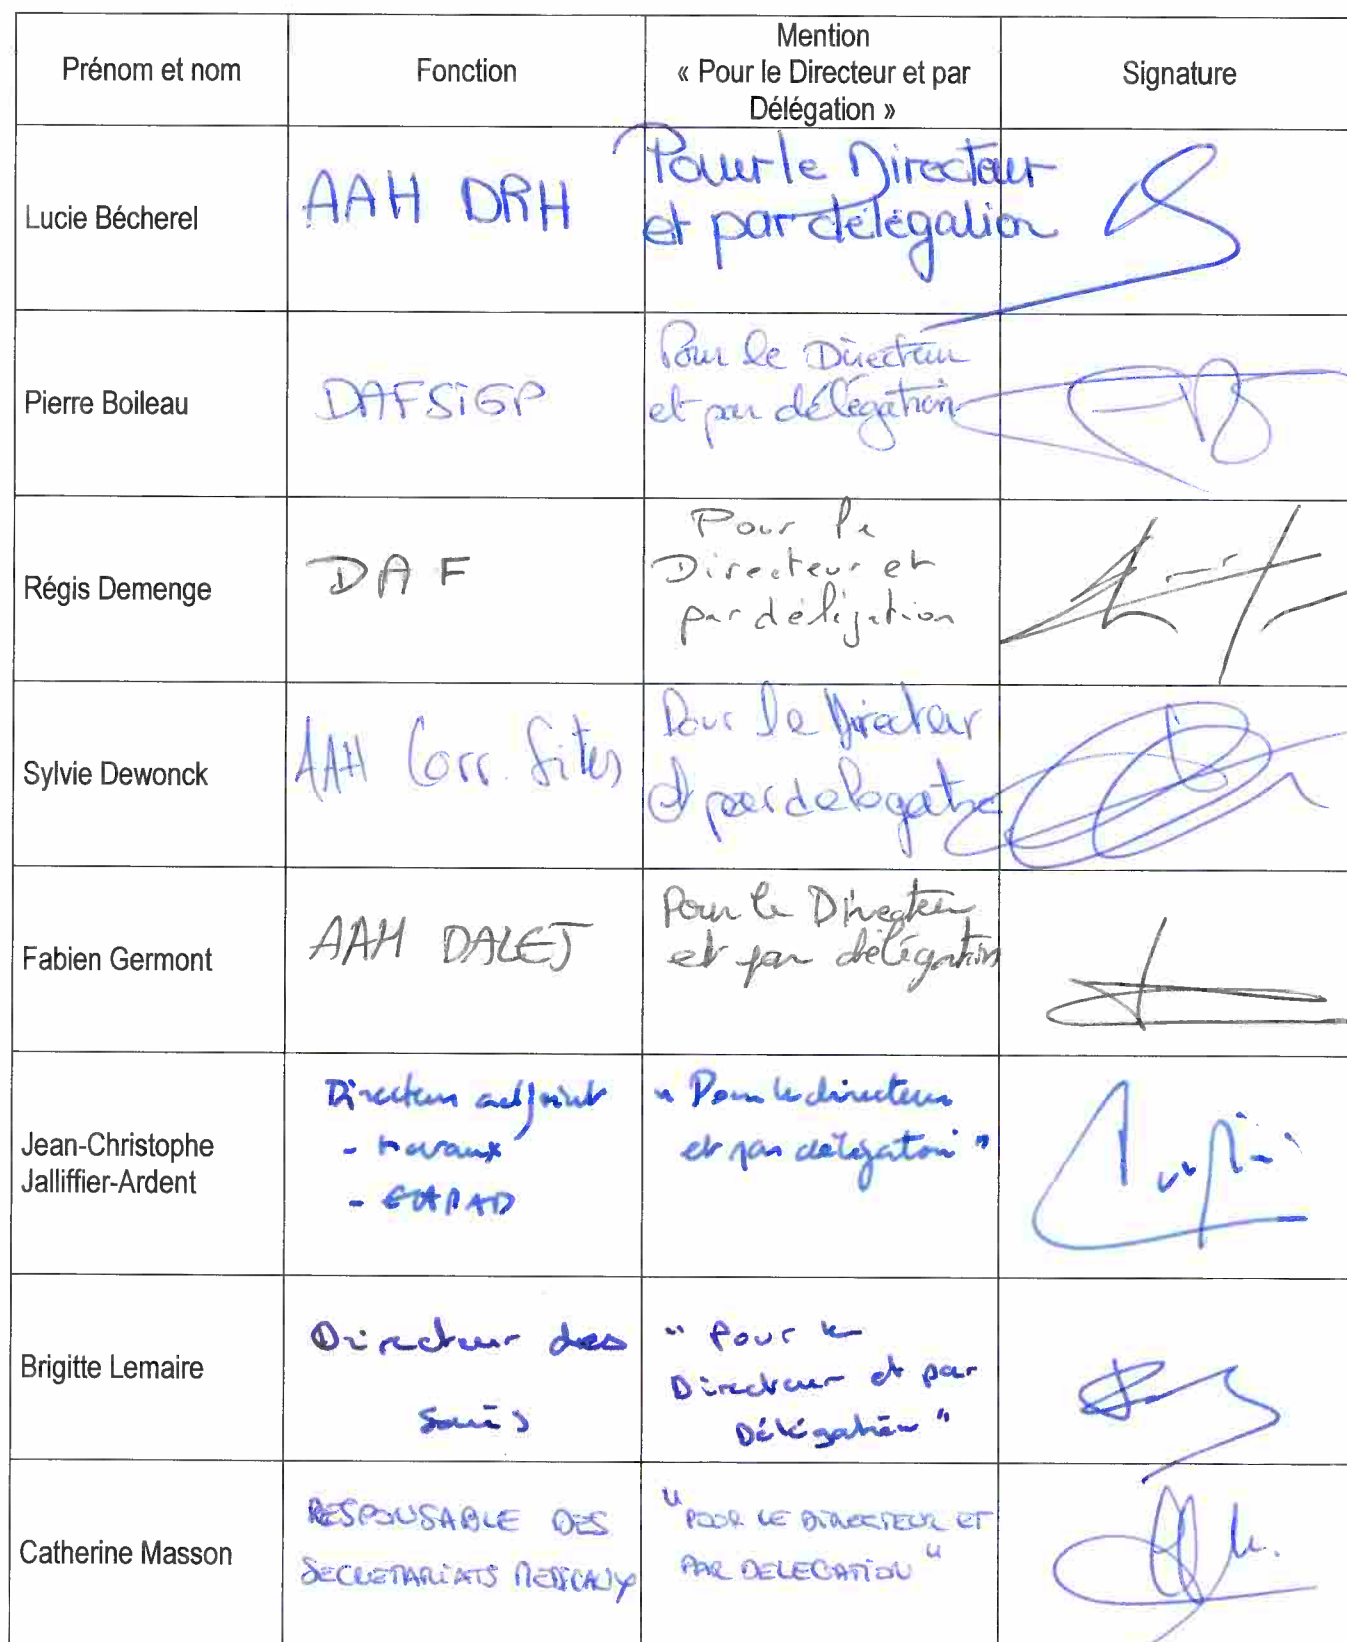 Prénom et nom
Fonction
Mention
« Pour le Directeur et par
Délégation »
Signature
Lucie Bécherel
AAH DRH
Pour le Directeur
et par délégation
Pierre Boileau
DAFSiGP
Pour le Directeur
et par délégation
Régis Demenge
DAF
Pour le
Directeur et
par délégation
Sylvie Dewonck
AAH Corr. Sites
Pour le Directeur
et par delegation
Fabien Germont
AAH DALEJ
Pour le Directeur
et par délégation
Jean-Christophe
Jalliffier-Ardent
Directeur adjoint
- travaux
- EHPAD
" Pour le directeur
et par délégation "
Brigitte Lemaire
Directeur des
Soins
" Pour le
Directeur et par
Délégation "
Catherine Masson
RESPONSABLE DES
SECRETARIATS MEDICAUX
" POUR LE DIRECTEUR ET
PAR DELEGATION "